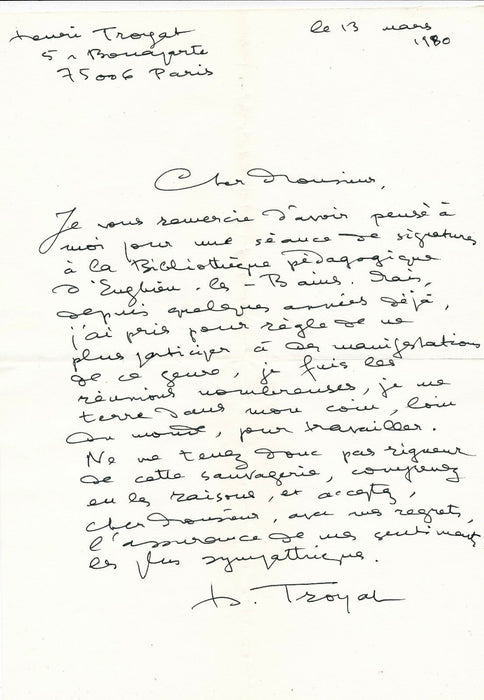 Henri Troyat
5 r Bonaparte
75006 Paris
le 13 mars
1980
Cher Monsieur,
Je vous remercie d'avoir pensé à
moi pour une séance de signatures
à la Bibliothèque pédagogique
d'Enghien-les-Bains. Mais,
depuis quelques années déjà,
j'ai pris pour règle de ne
plus participer à des manifestations
de ce genre, je fuis les
réunions nombreuses, je me
terre dans mon coin, loin
du monde, pour travailler.
Ne me tenez donc pas rigueur
de cette sauvagerie, comprenez
en les raisons, et acceptez,
cher Monsieur, avec mes regrets,
l'assurance de mes sentiments
les plus sympathiques.
H. Troyat